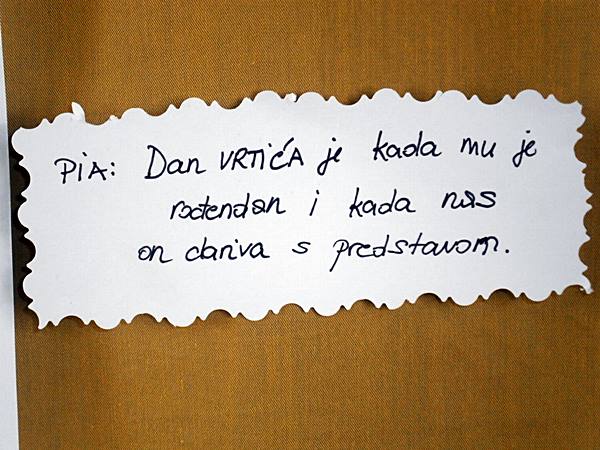 PIA: Dan VRTIĆA je kada mu je
rođendan i kada nas
on dariva s predstavom.